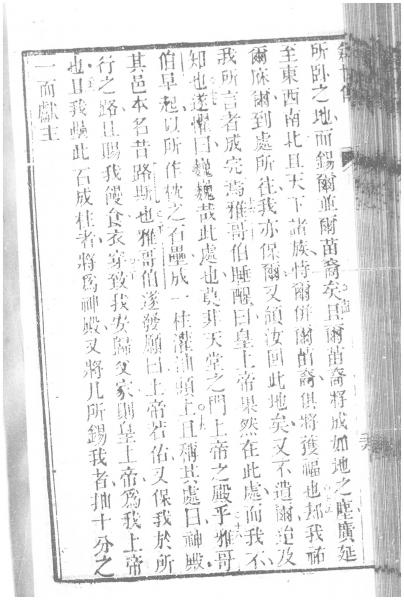 所臥之地而錫爾並爾苗裔矣且爾苗裔將成如地之塵廣延
至東西南北且天下諸族恃爾併爾苗裔俱將獲福也却我祐
爾庥爾到處所往我亦保爾又領汝回此地矣又不遺爾迨及
我所言者成完焉雅哥伯睡醒曰皇上帝果然在此處而我不
知也遂懼曰巍巍哉此處也莫非天堂之門上帝之殿乎雅哥
伯早起以所作枕之石壘成一柱灌油頭上且稱其處曰神殿
其邑本名昔路斯也雅哥伯遂發願曰上帝若佑又保我於所
行之路且賜我饅食衣穿致我安歸父家則皇上帝為我上帝
也且我竪此石成柱者將為神殿又將凡所錫我者抽十分之
一而獻主